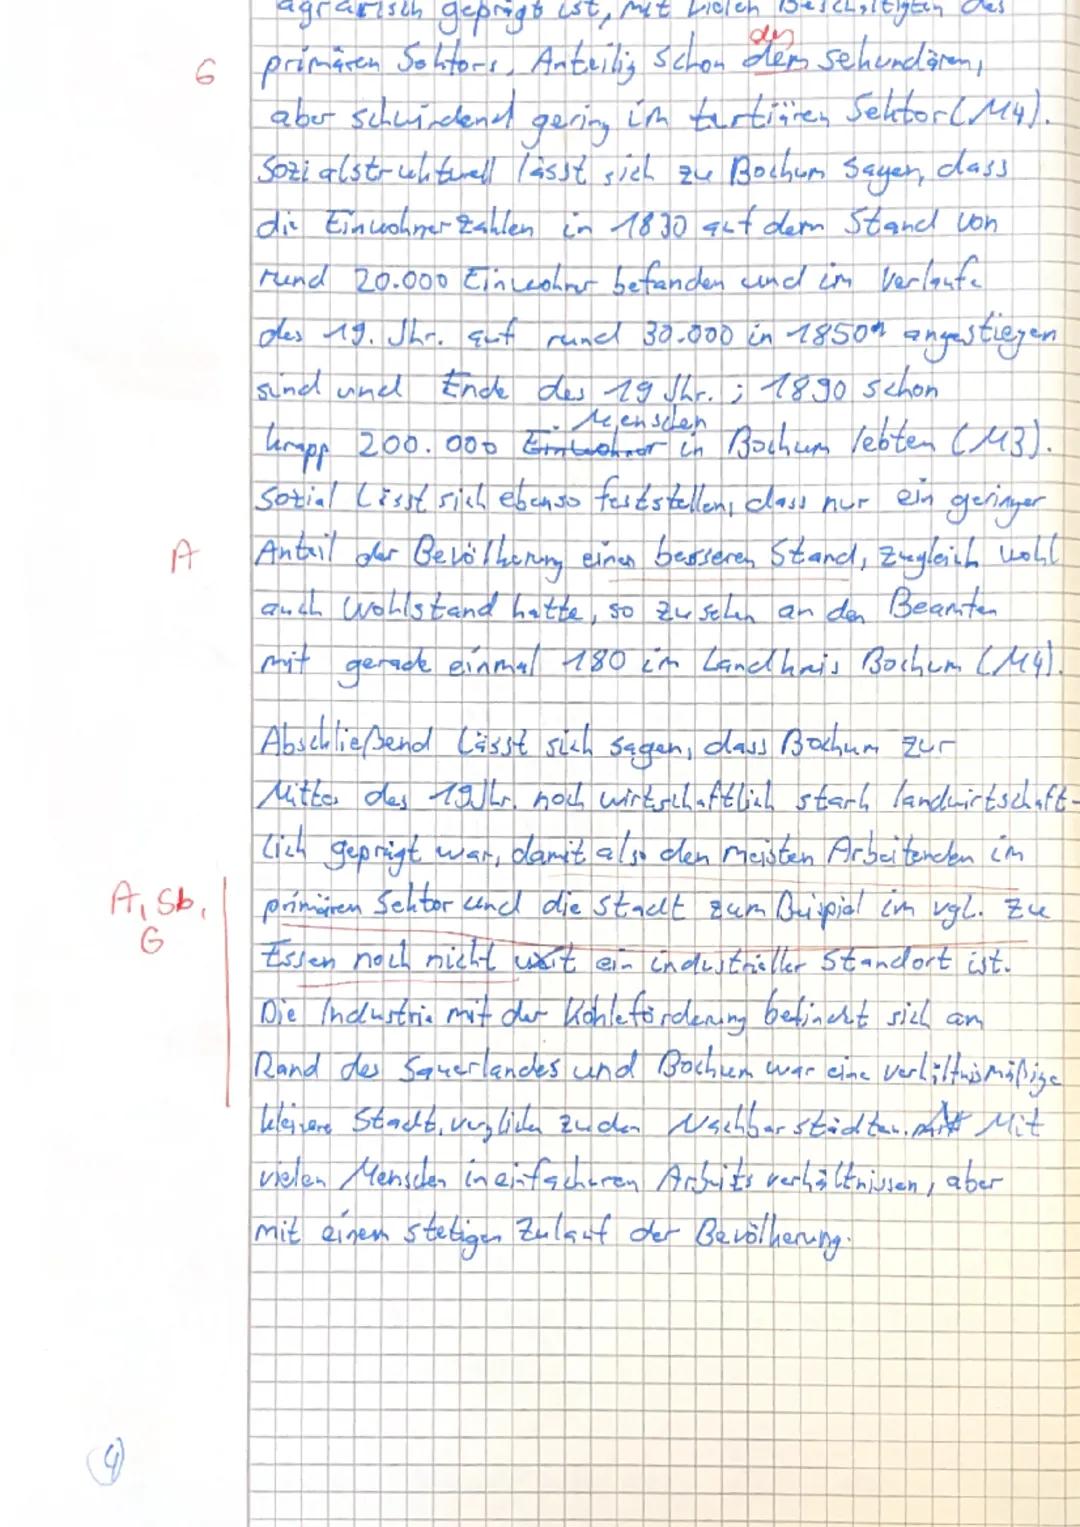 agrarisch geprägt ist, mit vielen Beschäftigten des
des
G primären Sektors. Anteilig schon dem sekundären,
aber schwindend gering im tertiären Sektor (M4).
Sozialstrukturell lässt sich zu Bochum sagen, dass
die Einwohnerzahlen in 1830 auf dem Stand von
rund 20.000 Einwohner befanden und im Verlaufe
des 19. Jhr. auf rund 30.000 in 1850 angestiegen
sind und Ende des 19 Jhr.; 1890 schon
Menschen
knapp 200.000 Einwohner in Bochum lebten (M3).
Sozial lässt sich ebenso feststellen, dass nur ein geringer
A Anteil der Bevölkerung einen besseren Stand, zugleich wohl
auch Wohlstand hatte, so zu sehen an den Beamten
mit gerade einmal 180 im Landkreis Bochum (M4).
Abschließend lässt sich sagen, dass Bochum zur
Mitte des 19 Jhr. noch wirtschaftlich stark landwirtschaft-
lich geprägt war, damit also den meisten Arbeitenden im
A, Sb, primären Sektor und die Stadt zum Beispiel im vgl. zu
G Essen noch nicht weit ein industrieller Standort ist.
Die Industrie mit der Kohleförderung befindet sich am
Rand des Sauerlandes und Bochum war eine verhältnismäßige
kleinere Stadt, verglichen zu den Nachbarstädten. Mit
vielen Menschen in einfacheren Arbeitsverhältnissen, aber
mit einem stetigen Zulauf der Bevölkerung.
4